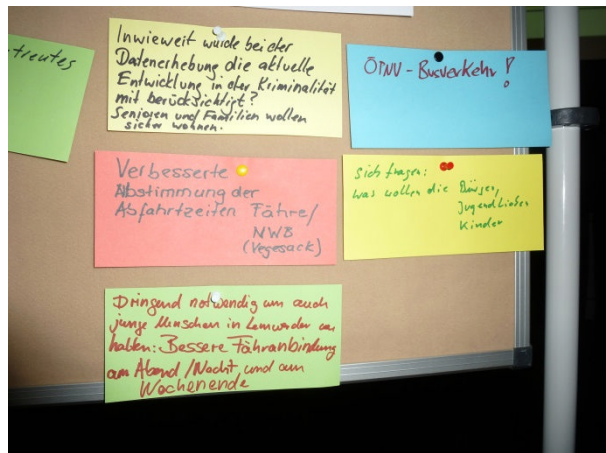 treutes
Inwieweit wurde bei der
Datenerhebung die aktuelle
Entwicklung in der Kriminalität
mit berücksichtigt?
Senioren und Familien wollen
sicher wohnen.
ÖPNV - Busverkehr!
Verbesserte
Abstimmung der
Abfahrtzeiten Fähre/
NWB
(Vegesack)
Sich fragen:
was wollen die Bürger,
Jugendlichen
Kinder
Dringend notwendig um auch
junge Menschen in Lemwerder zu
halten: Bessere Fähranbindung
am Abend/Nacht, und am
Wochenende